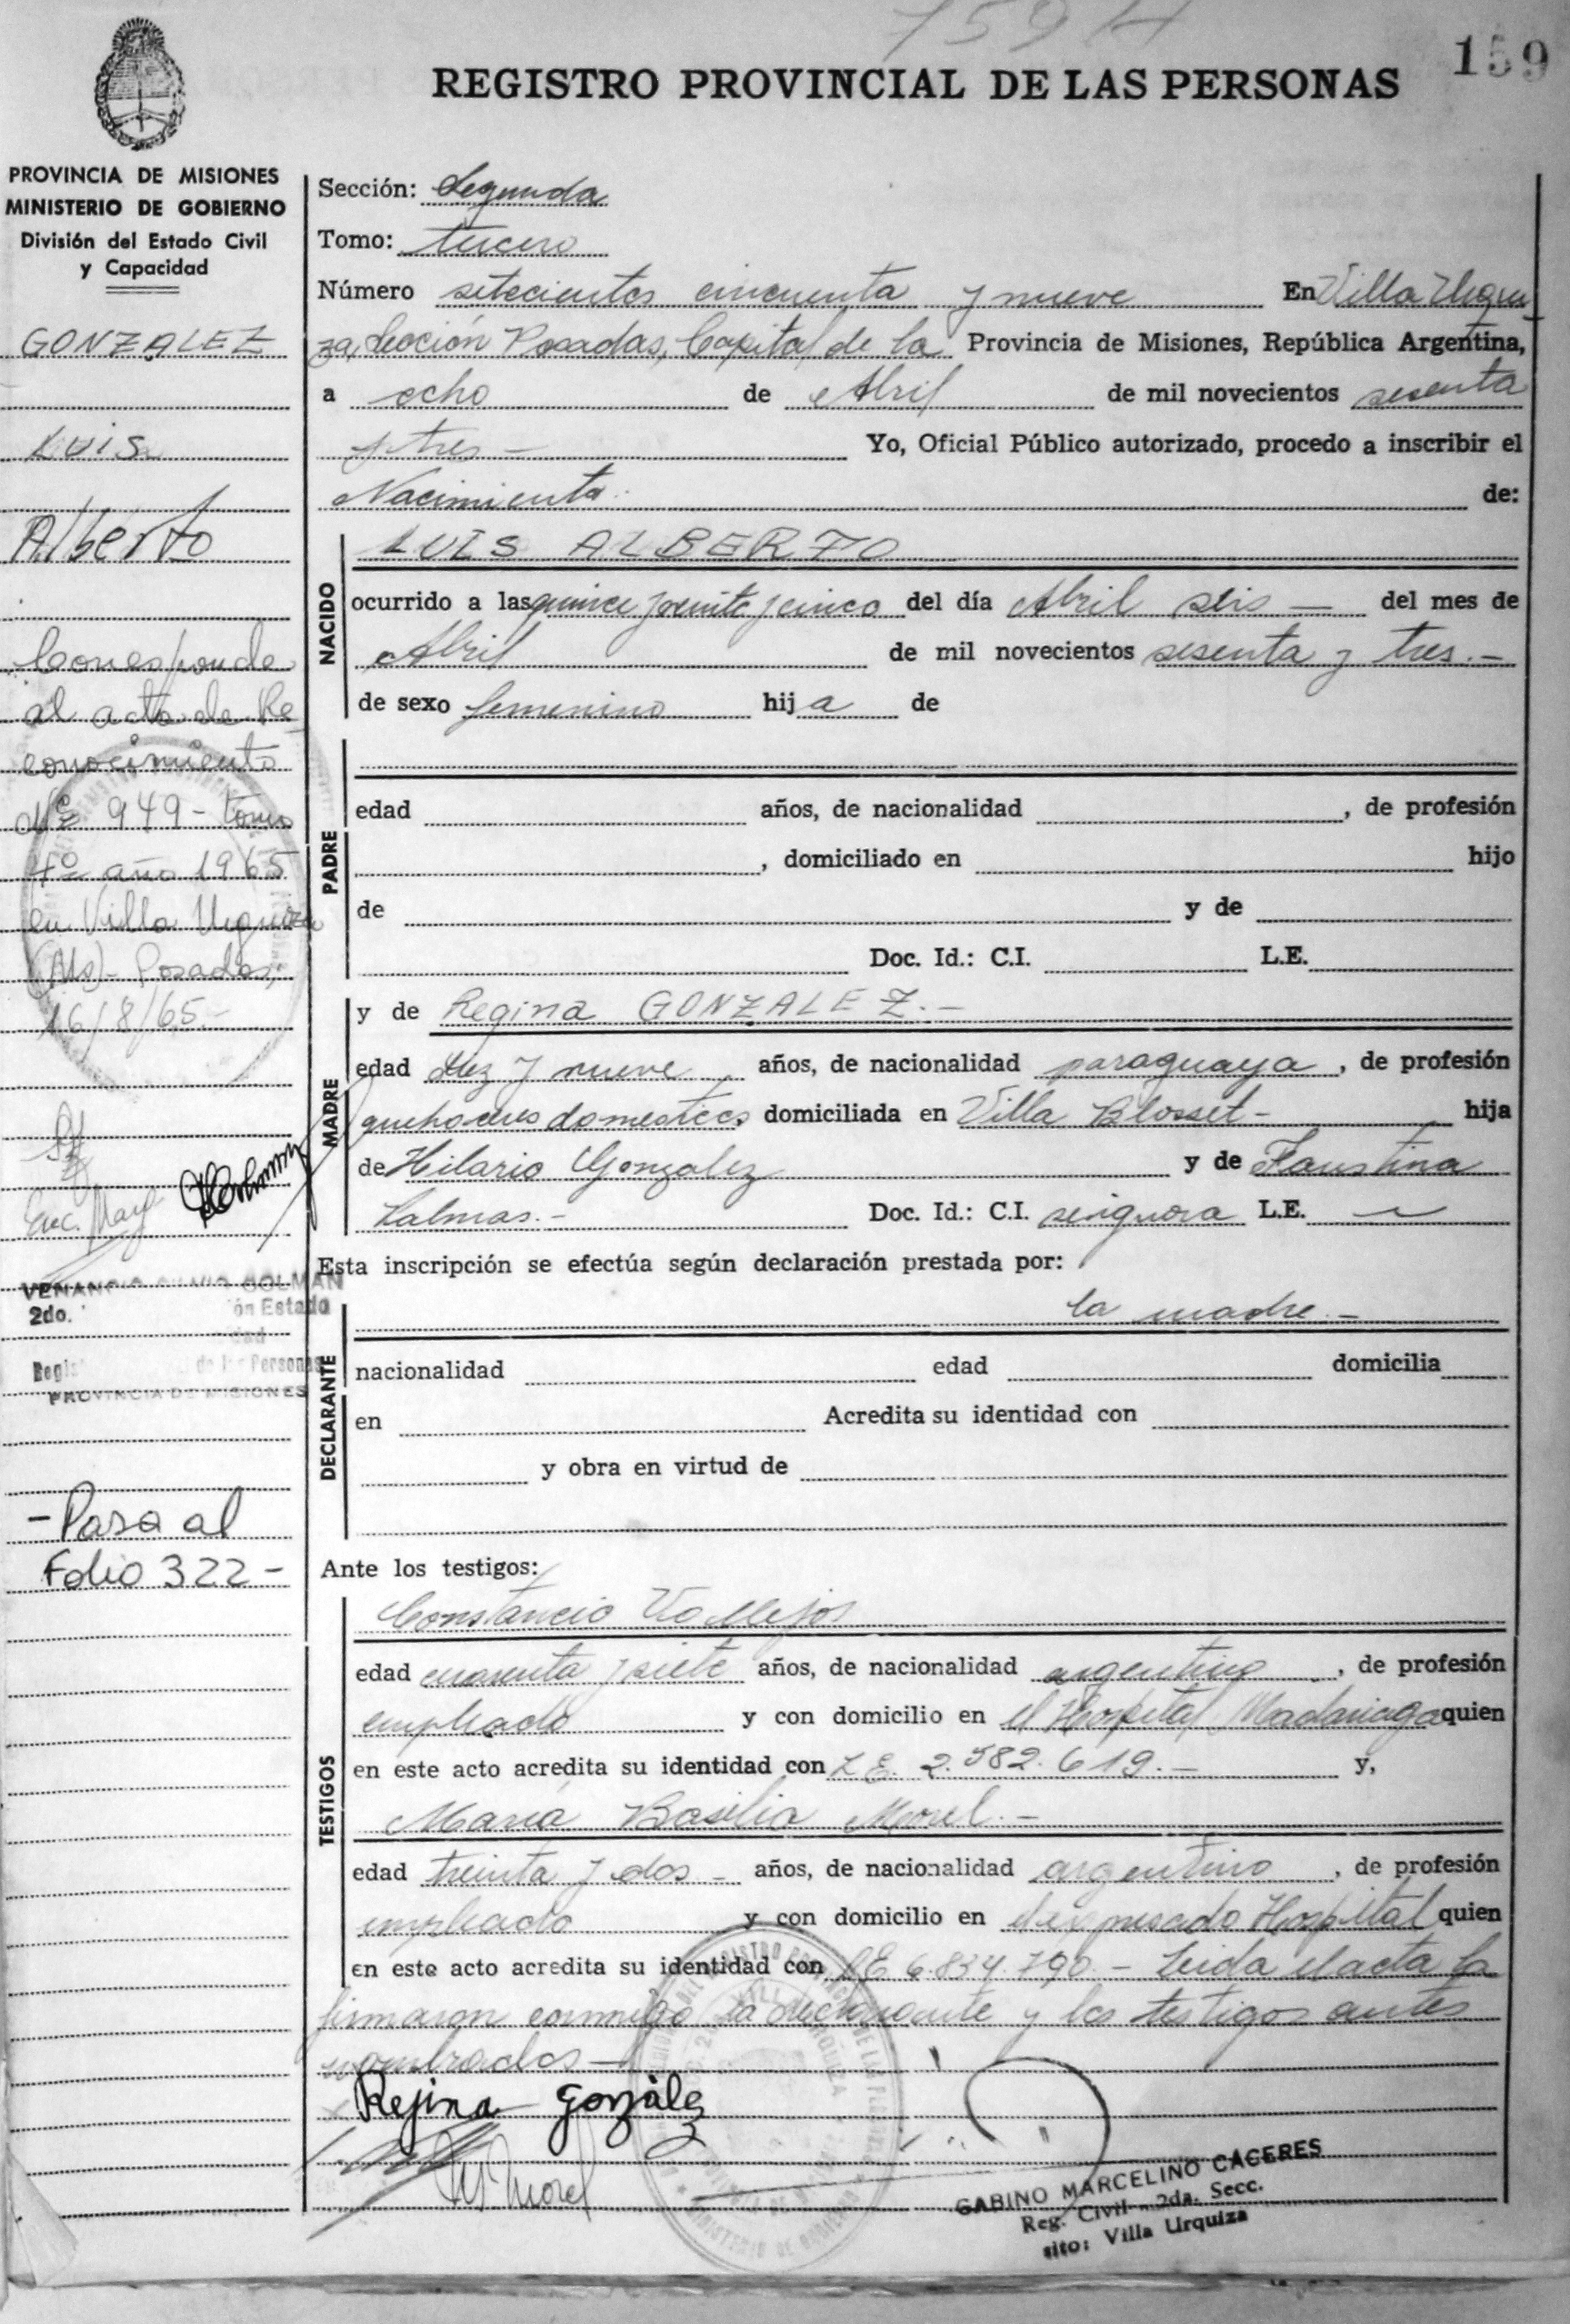 159
REGISTRO PROVINCIAL DE LAS PERSONAS
PROVINCIA DE MISIONES
MINISTERIO DE GOBIERNO
División del Estado Civil
y Capacidad
GONZALEZ
LUIS
Alberto
Corresponde
al acta de Re
conocimiento
Nº 949 - tomo
4º año 1965
en Villa Urquiza
(Ms) - Posadas,
16/8/65.-
Enc. Mayo
VENANCIO COLMAN
2do. ón Estado
dad
Regis de las Personas
PROVINCIA DE MISIONES
- Pasa al
Folio 322 -
Sección: Segunda
Tomo: tercero
Número setecientos cincuenta y nueve En Villa Urqui
za, Sección Posadas, Capital de la Provincia de Misiones, República Argentina,
a ocho de Abril de mil novecientos sesenta
y tres - Yo, Oficial Público autorizado, procedo a inscribir el
Nacimiento de:
NACIDO
LUIS ALBERTO
ocurrido a las quince y veinte y cinco del día Abril seis — del mes de
Abril de mil novecientos sesenta y tres.-
de sexo femenino hija de
PADRE
edad años, de nacionalidad , de profesión
, domiciliado en hijo
de y de
Doc. Id.: C.I. L.E.
MADRE
y de Regina GONZALEZ.-
edad diez y nueve años, de nacionalidad paraguaya, de profesión
quehaceres domesticos domiciliada en Villa Blosset - hija
de Hilario Gonzalez y de Faustina
Salinas.- Doc. Id.: C.I. seignora L.E.
Esta inscripción se efectúa según declaración prestada por:
DECLARANTE
la madre.-
nacionalidad edad domicilia
en Acredita su identidad con
y obra en virtud de
Ante los testigos:
TESTIGOS
Constancio Vallejos
edad cuarenta y siete años, de nacionalidad argentino, de profesión
empleado y con domicilio en el Hospital Madariaga quien
en este acto acredita su identidad con L.E. 2.582.619.- y,
Maria Basilia Morel.-
edad treinta y dos - años, de nacionalidad argentino, de profesión
empleado y con domicilio en el expresado Hospital quien
en este acto acredita su identidad con LE 6.834.790.- Leida el acta la
firmaron conmigo la declarante y los testigos antes
nombrados —
Rejina Gonzàlez
M Morel
GABINO MARCELINO CACERES
Reg. Civil - 2da. Secc.
sito: Villa Urquiza